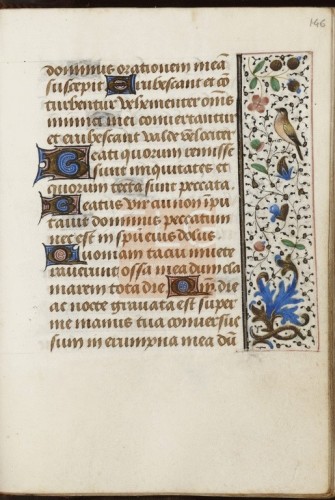 146
dominus orationem meā
suscepit Erubescant et cō
turbentur vehementer om̄s
inimici mei conuertantur
et erubescant valde velociter
Beati quorum remisse
sunt iniquitates et
quorum tecta sunt peccata.
Beatus vir cui non īpu
tauit dominus peccatum
nec est in spū eius dolus
Quoniam tacui inuete
rauerunt ossa mea dum cla
marem tota die Qm̄ die
ac nocte grauata est super
me manus tua conuersus
sum in erumpna mea dū